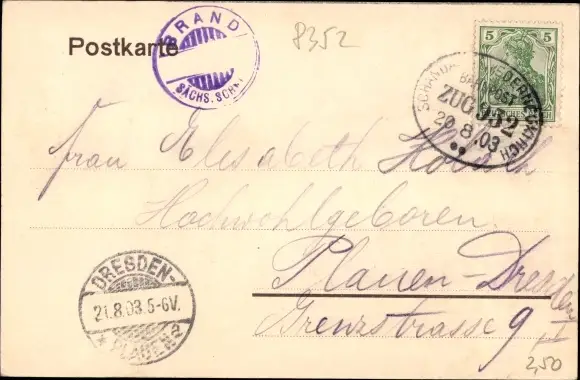 Postkarte
BRAND
SÄCHS. SCHW
8352
5
SCHANDAU NIEDERNEUKIRCH
BAHNPOST
ZUG 952
20.8.03
Frau Elisabeth
Hochwohlgeboren
Plauen-Dresden
Grenzstrasse 9 I
DRESDEN-
21.8.03.5-6V.
* PLAUEN a
2,50